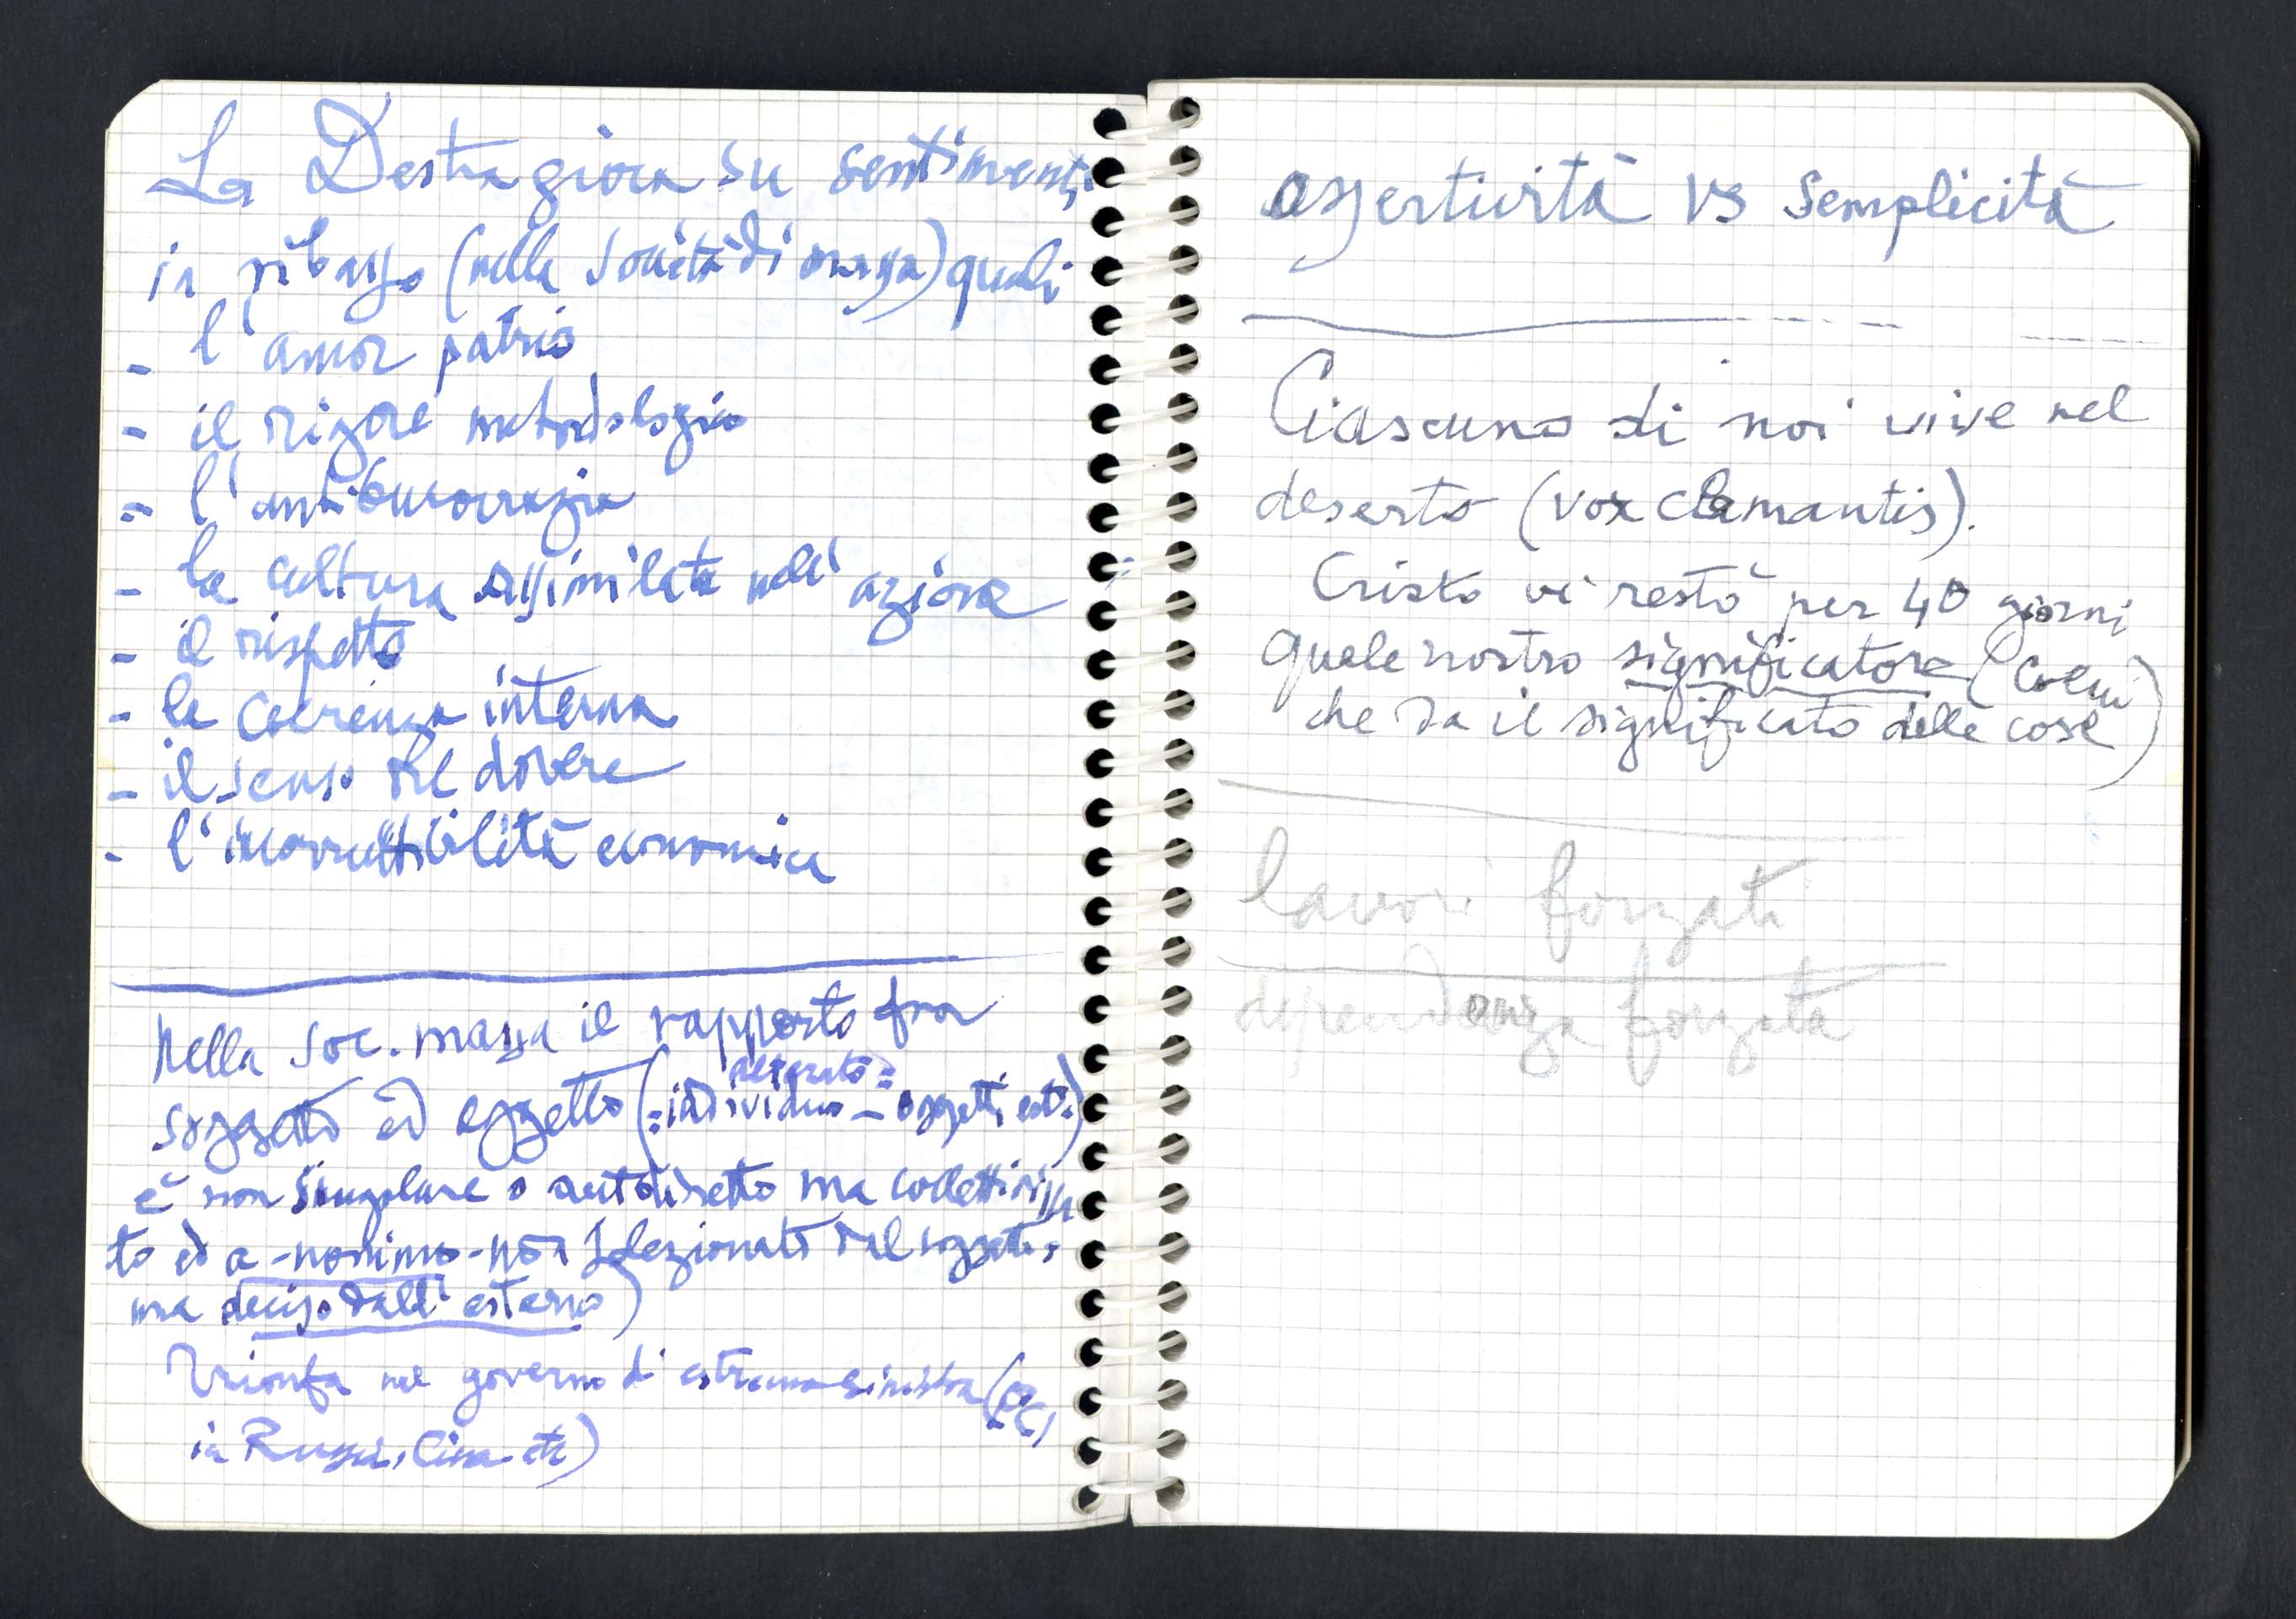 La Destra gioca su sentimenti
in ribasso (nella società di massa) quali
- l'amor patrio
- il rigore metodologico
- l'antiburocrazia
- la cultura assimilata nell'azione
- il rispetto
- la coerenza interna
- il senso del dovere
- l'incorruttibilità economica
Nella soc. massa il rapporto fra
soggetto ed oggetto (= individuo - oggetti est.)
è non singolare o autodiretto ma collettivizza
to ed a-nonimo - non selezionato dal soggetto,
ma deciso dall'esterno)
Trionfa nel governo di estrema sinistra (PC,
in Russia, Cina etc)
assertività vs semplicità
Ciascuno di noi vive nel
deserto (vox clamantis).
Cristo vi restò per 40 giorni
quale nostro significatore (colui
che dà il significato delle cose)
lavori forzati
dipendenza forzata